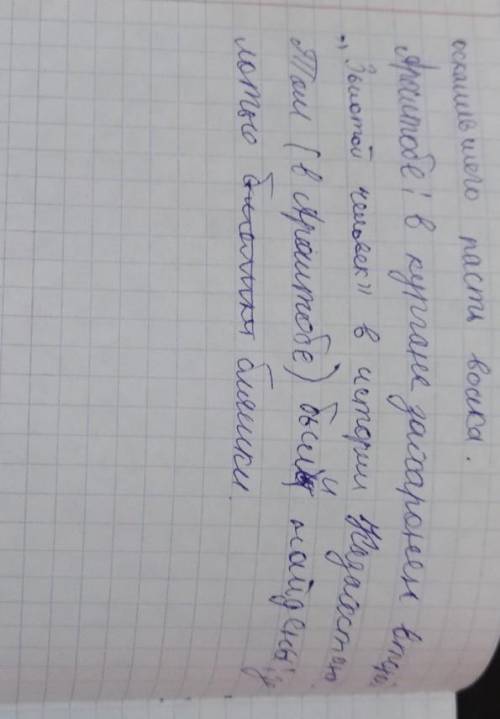 оскалившего пасть волка.
Аралтобе! в кургане захаронен второй
"Золотой человек" в истории Казахстана
Там (в Аралтобе) были найдены зо
лотые бляшки.